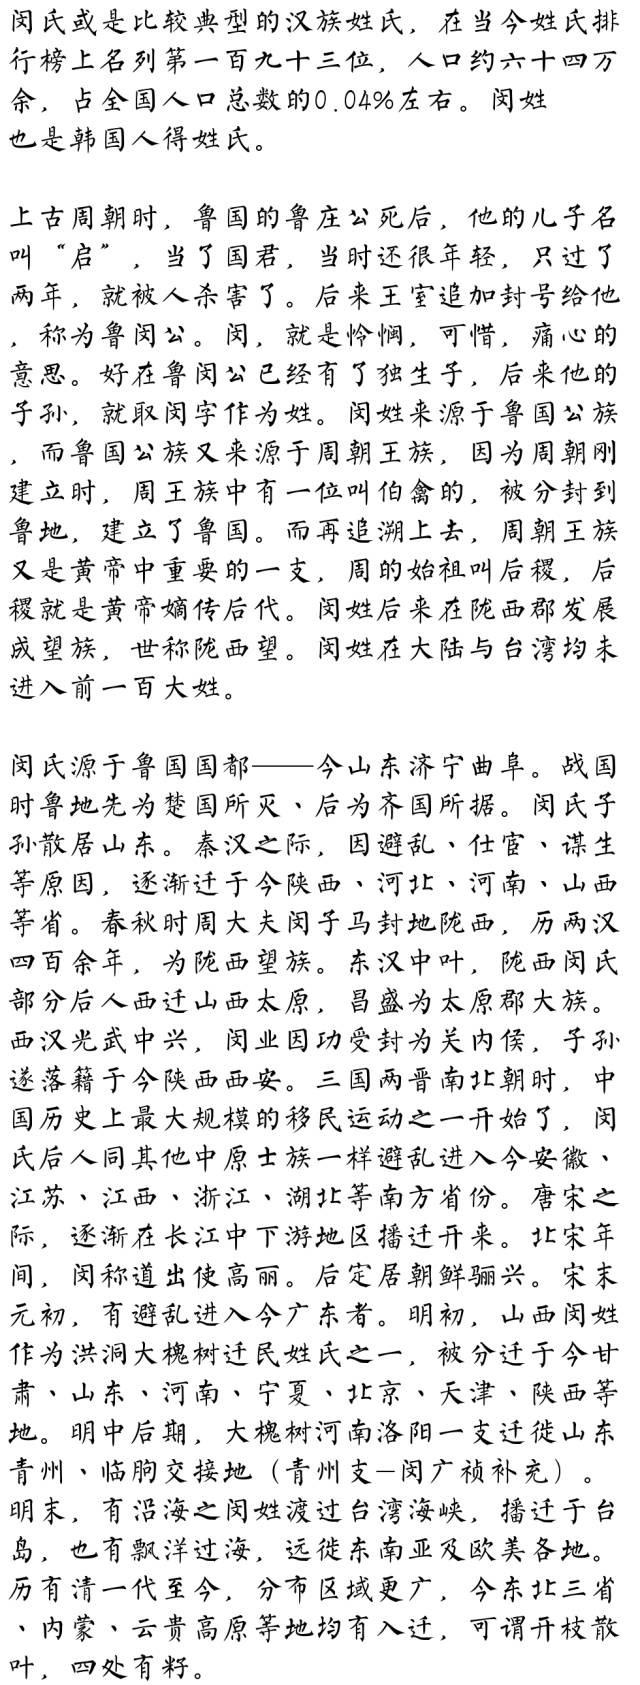 闵氏或是比较典型的汉族姓氏，在当今姓氏排
行榜上名列第一百九十三位，人口约六十四万
余，占全国人口总数的0.04%左右。闵姓
也是韩国人得姓氏。
上古周朝时，鲁国的鲁庄公死后，他的儿子名
叫“启”，当了国君，当时还很年轻，只过了
两年，就被人杀害了。后来王室追加封号给他
，称为鲁闵公。闵，就是怜悯，可惜，痛心的
意思。好在鲁闵公已经有了独生子，后来他的
子孙，就取闵字作为姓。闵姓来源于鲁国公族
，而鲁国公族又来源于周朝王族，因为周朝刚
建立时，周王族中有一位叫伯禽的，被分封到
鲁地，建立了鲁国。而再追溯上去，周朝王族
又是黄帝中重要的一支，周的始祖叫后稷，后
稷就是黄帝嫡传后代。闵姓后来在陇西郡发展
成望族，世称陇西望。闵姓在大陆与台湾均未
进入前一百大姓。
闵氏源于鲁国国都——今山东济宁曲阜。战国
时鲁地先为楚国所灭、后为齐国所据。闵氏子
孙散居山东。秦汉之际，因避乱、仕宦、谋生
等原因，逐渐迁于今陕西、河北、河南、山西
等省。春秋时周大夫闵子马封地陇西，历两汉
四百余年，为陇西望族。东汉中叶，陇西闵氏
部分后人西迁山西太原，昌盛为太原郡大族。
西汉光武中兴，闵业因功受封为关内侯，子孙
遂落籍于今陕西西安。三国两晋南北朝时，中
国历史上最大规模的移民运动之一开始了，闵
氏后人同其他中原士族一样避乱进入今安徽、
江苏、江西、浙江、湖北等南方省份。唐宋之
际，逐渐在长江中下游地区播迁开来。北宋年
间，闵称道出使高丽。后定居朝鲜骊兴。宋末
元初，有避乱进入今广东者。明初，山西闵姓
作为洪洞大槐树迁民姓氏之一，被分迁于今甘
肃、山东、河南、宁夏、北京、天津、陕西等
地。明中后期，大槐树河南洛阳一支迁徙山东
青州、临朐交接地（青州支—闵广祯补充）。
明末，有沿海之闵姓渡过台湾海峡，播迁于台
岛，也有飘洋过海，远徙东南亚及欧美各地。
历有清一代至今，分布区域更广，今东北三省
、内蒙、云贵高原等地均有入迁，可谓开枝散
叶，四处有籽。